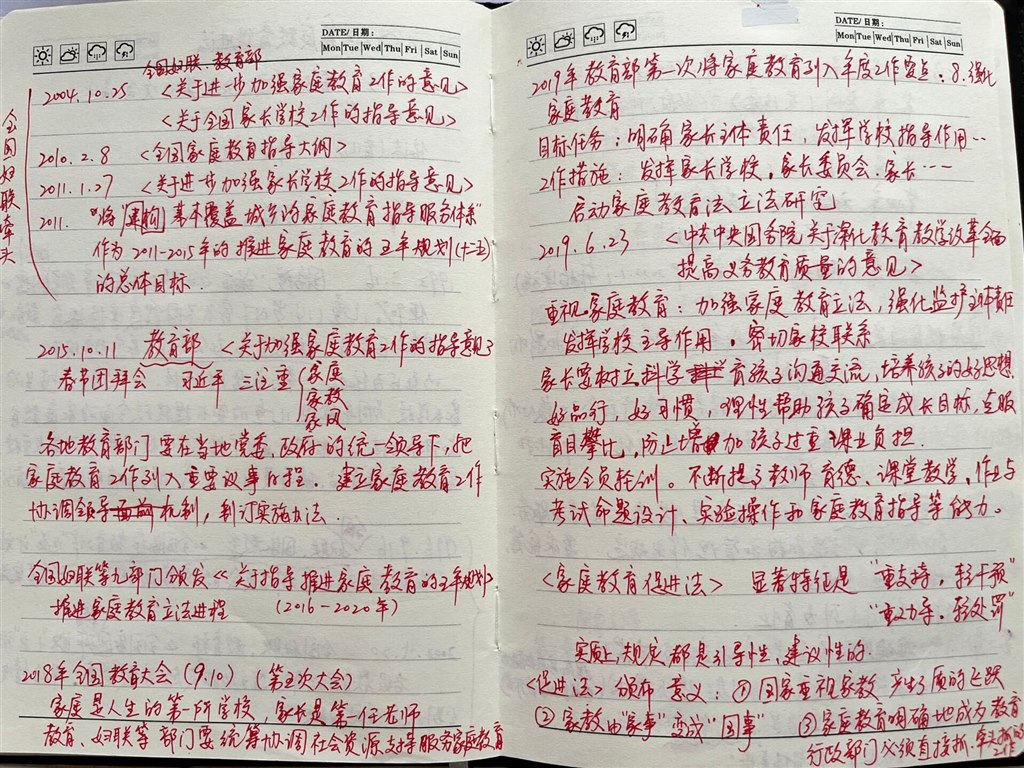 DATE/日期:
Mon Tue Wed Thu Fri Sat Sun
全国妇联牵头
全国妇联、教育部
2004.10.25 <关于进一步加强家庭教育工作的意见>
<关于全国家长学校工作的指导意见>
2010.2.8 <全国家庭教育指导大纲>
2011.1.27 <关于进一步加强家长学校工作的指导意见>
2011. "将"构建基本覆盖城乡的家庭教育指导服务体系"
作为2011-2015年的推进家庭教育的五年规划(十二五)
的总体目标.
2015.10.11 教育部 <关于加强家庭教育工作的指导意见>
春节团拜会 习近平 三注重 {家庭
家教
家风
各地教育部门要在当地党委、政府的统一领导下,把
家庭教育工作列入重要议事日程. 建立家庭教育工作
协调领导机制, 制订实施办法.
全国妇联等九部门颁发<<关于指导推进家庭教育的五年规划>
推进家庭教育立法进程 (2016-2020年)
2018年全国教育大会(9.10) (第五次大会)
家庭是人生的第一所学校, 家长是第一任老师
教育、妇联等部门要统筹协调社会资源支持服务家庭教育
DATE/日期:
Mon Tue Wed Thu Fri Sat Sun
2019年教育部第一次将家庭教育列入年度工作要点: 8.强化
家庭教育
目标任务: 明确家长主体责任, 发挥学校指导作用…
工作措施: 发挥家长学校、家长委员会、家长……
启动家庭教育法立法研究
2019.6.23 <中共中央国务院关于深化教育教学改革全面
提高义务教育质量的意见>
重视家庭教育: 加强家庭教育立法, 强化监护主体责任
发挥学校主导作用. 密切家校联系
家长要树立科学育孩子沟通交流, 培养孩子的好思想
好品行, 好习惯, 理性帮助孩子确定成长目标, 克服
盲目攀比, 防止增加孩子过重课业负担.
实施全员轮训. 不断提高教师育德、课堂教学、作业与
考试命题设计、实验操作和家庭教育指导等能力。
<家庭教育促进法> 显著特征是 "重支持, 轻干预"
"重引导, 轻处罚"
实质上, 规定都是引导性、建议性的.
<促进法>颁布意义: ①国家重视家教产生了质的飞跃
②家教由"家事"变成"国事" ③家庭教育明确地成为教育
行政部门必须直接抓、牵头抓的工作